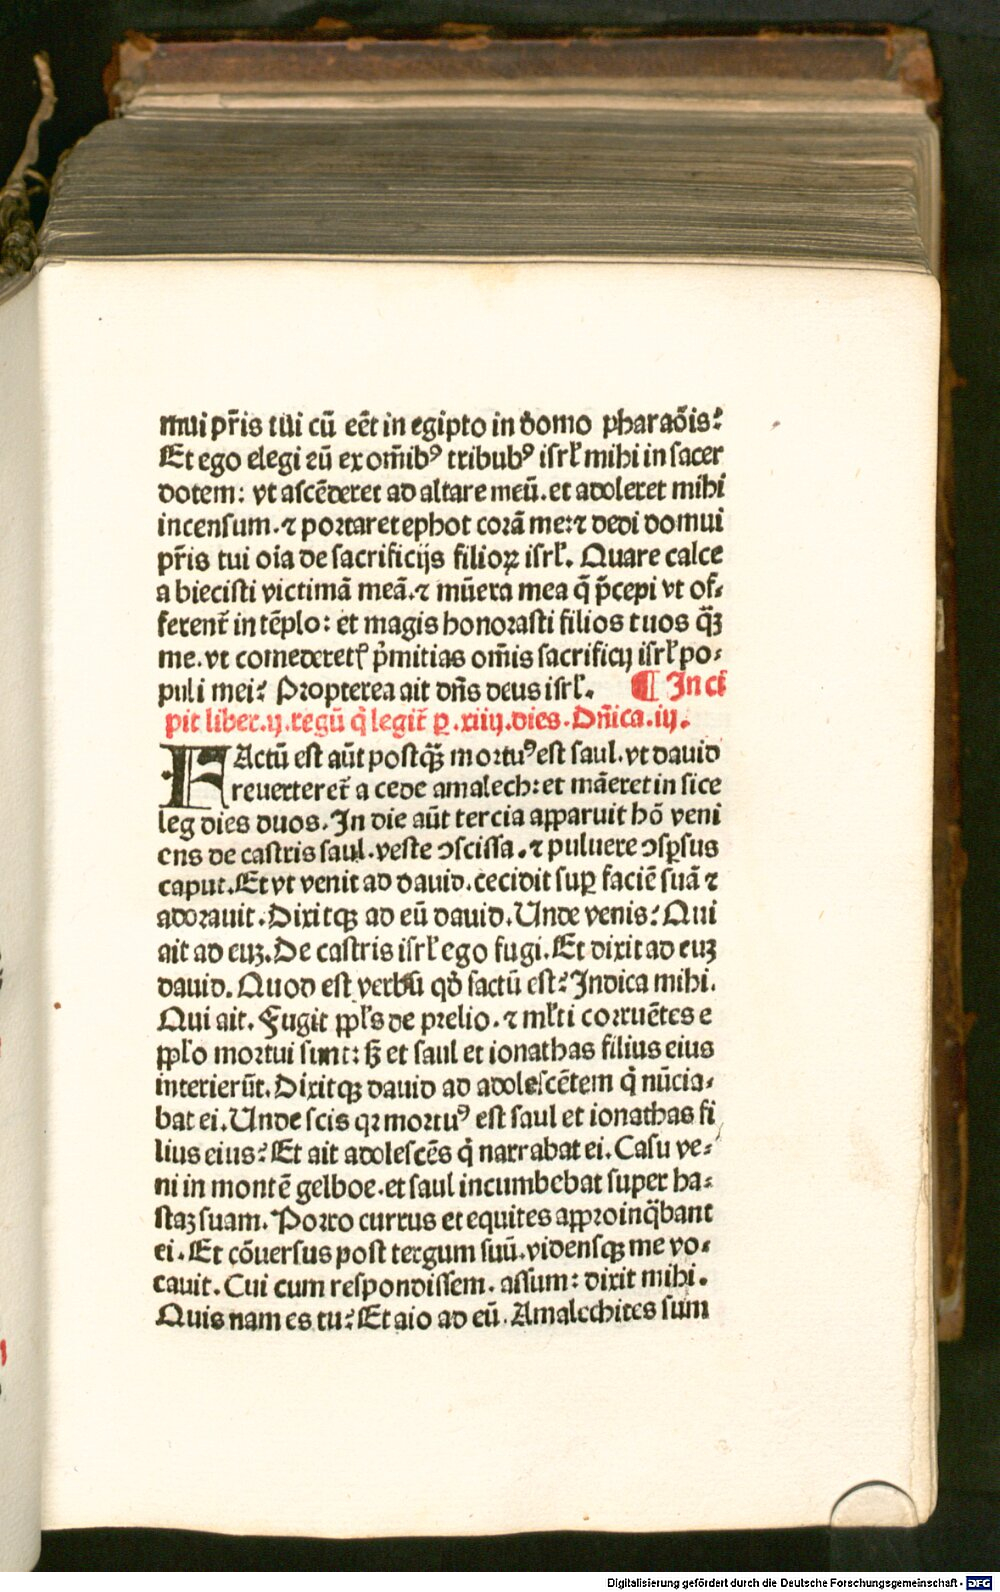 mui pr̃is tui cū eẽt in egipto in domo pharaõis:
Et ego elegi eū ex om̃ibꝰ tribubꝰ isrł mihi in sacer
dotem: vt ascēderet ad altare meū. et adoleret mihi
incensum. ⁊ portaret ephot corā me: ⁊ dedi domui
pr̃is tui oīa de sacrificijs filioꝝ isrł. Quare calce
abiecisti victimā meā. ⁊ mūera mea q̄ p̄cepi vt of-
ferent̃ in tēplo: et magis honorasti filios tuos q̄ꝫ
me. vt comederetꝭ p̄mitias om̃is sacrificij isrł po-
puli mei: Propterea ait dñs deus isrł. ¶ Inci
pit liber .ij. regū q̇ legit̃ ꝑ .xiiij. dies. Dñica .iij.
FActū est aūt postq̄ꝫ mortuꝰ est saul. vt dauid
reuerteret̃ a cede amalech: et māeret in sice
leg dies duos. In die aūt tercia apparuit hō veni
ens de castris saul. veste ↄscissa. ⁊ puluere ↄspsus
caput. Et vt venit ad dauid. cecidit suꝑ faciē suā ⁊
adorauit. Dixitqꝫ ad eū dauid. Unde venis: Qui
ait ad euꝫ. De castris isrł ego fugi. Et dixit ad euꝫ
dauid. Quod est verbū qd̄ factū est: Indica mihi.
Qui ait. Fugit ppłs de prelio. ⁊ młti corruētes e
ppło mortui sunt: sꝫ et saul et ionathas filius eius
interierūt. Dixitqꝫ dauid ad adolescētem q̇ nūcia-
bat ei. Unde scis qꝛ mortuꝰ est saul et ionathas fi
lius eius: Et ait adolescēs q̇ narrabat ei. Casu ve-
ni in montē gelboe. et saul incumbebat super ha-
staꝫ suam. Porro currus et equites appropinq̄bant
ei. Et cōuersus post tergum suū. vidensqꝫ me vo-
cauit. Cui cum respondissem. assum: dixit mihi.
Quis nam es tu: Et aio ad eū. Amalechites sum
Digitalisierung gefördert durch die Deutsche Forschungsgemeinschaft - DFG